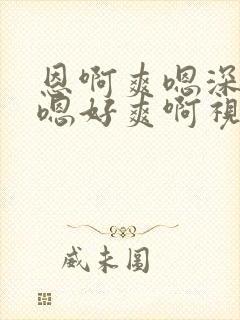 恩啊爽嗯深
嗯好爽啊视
威未圆